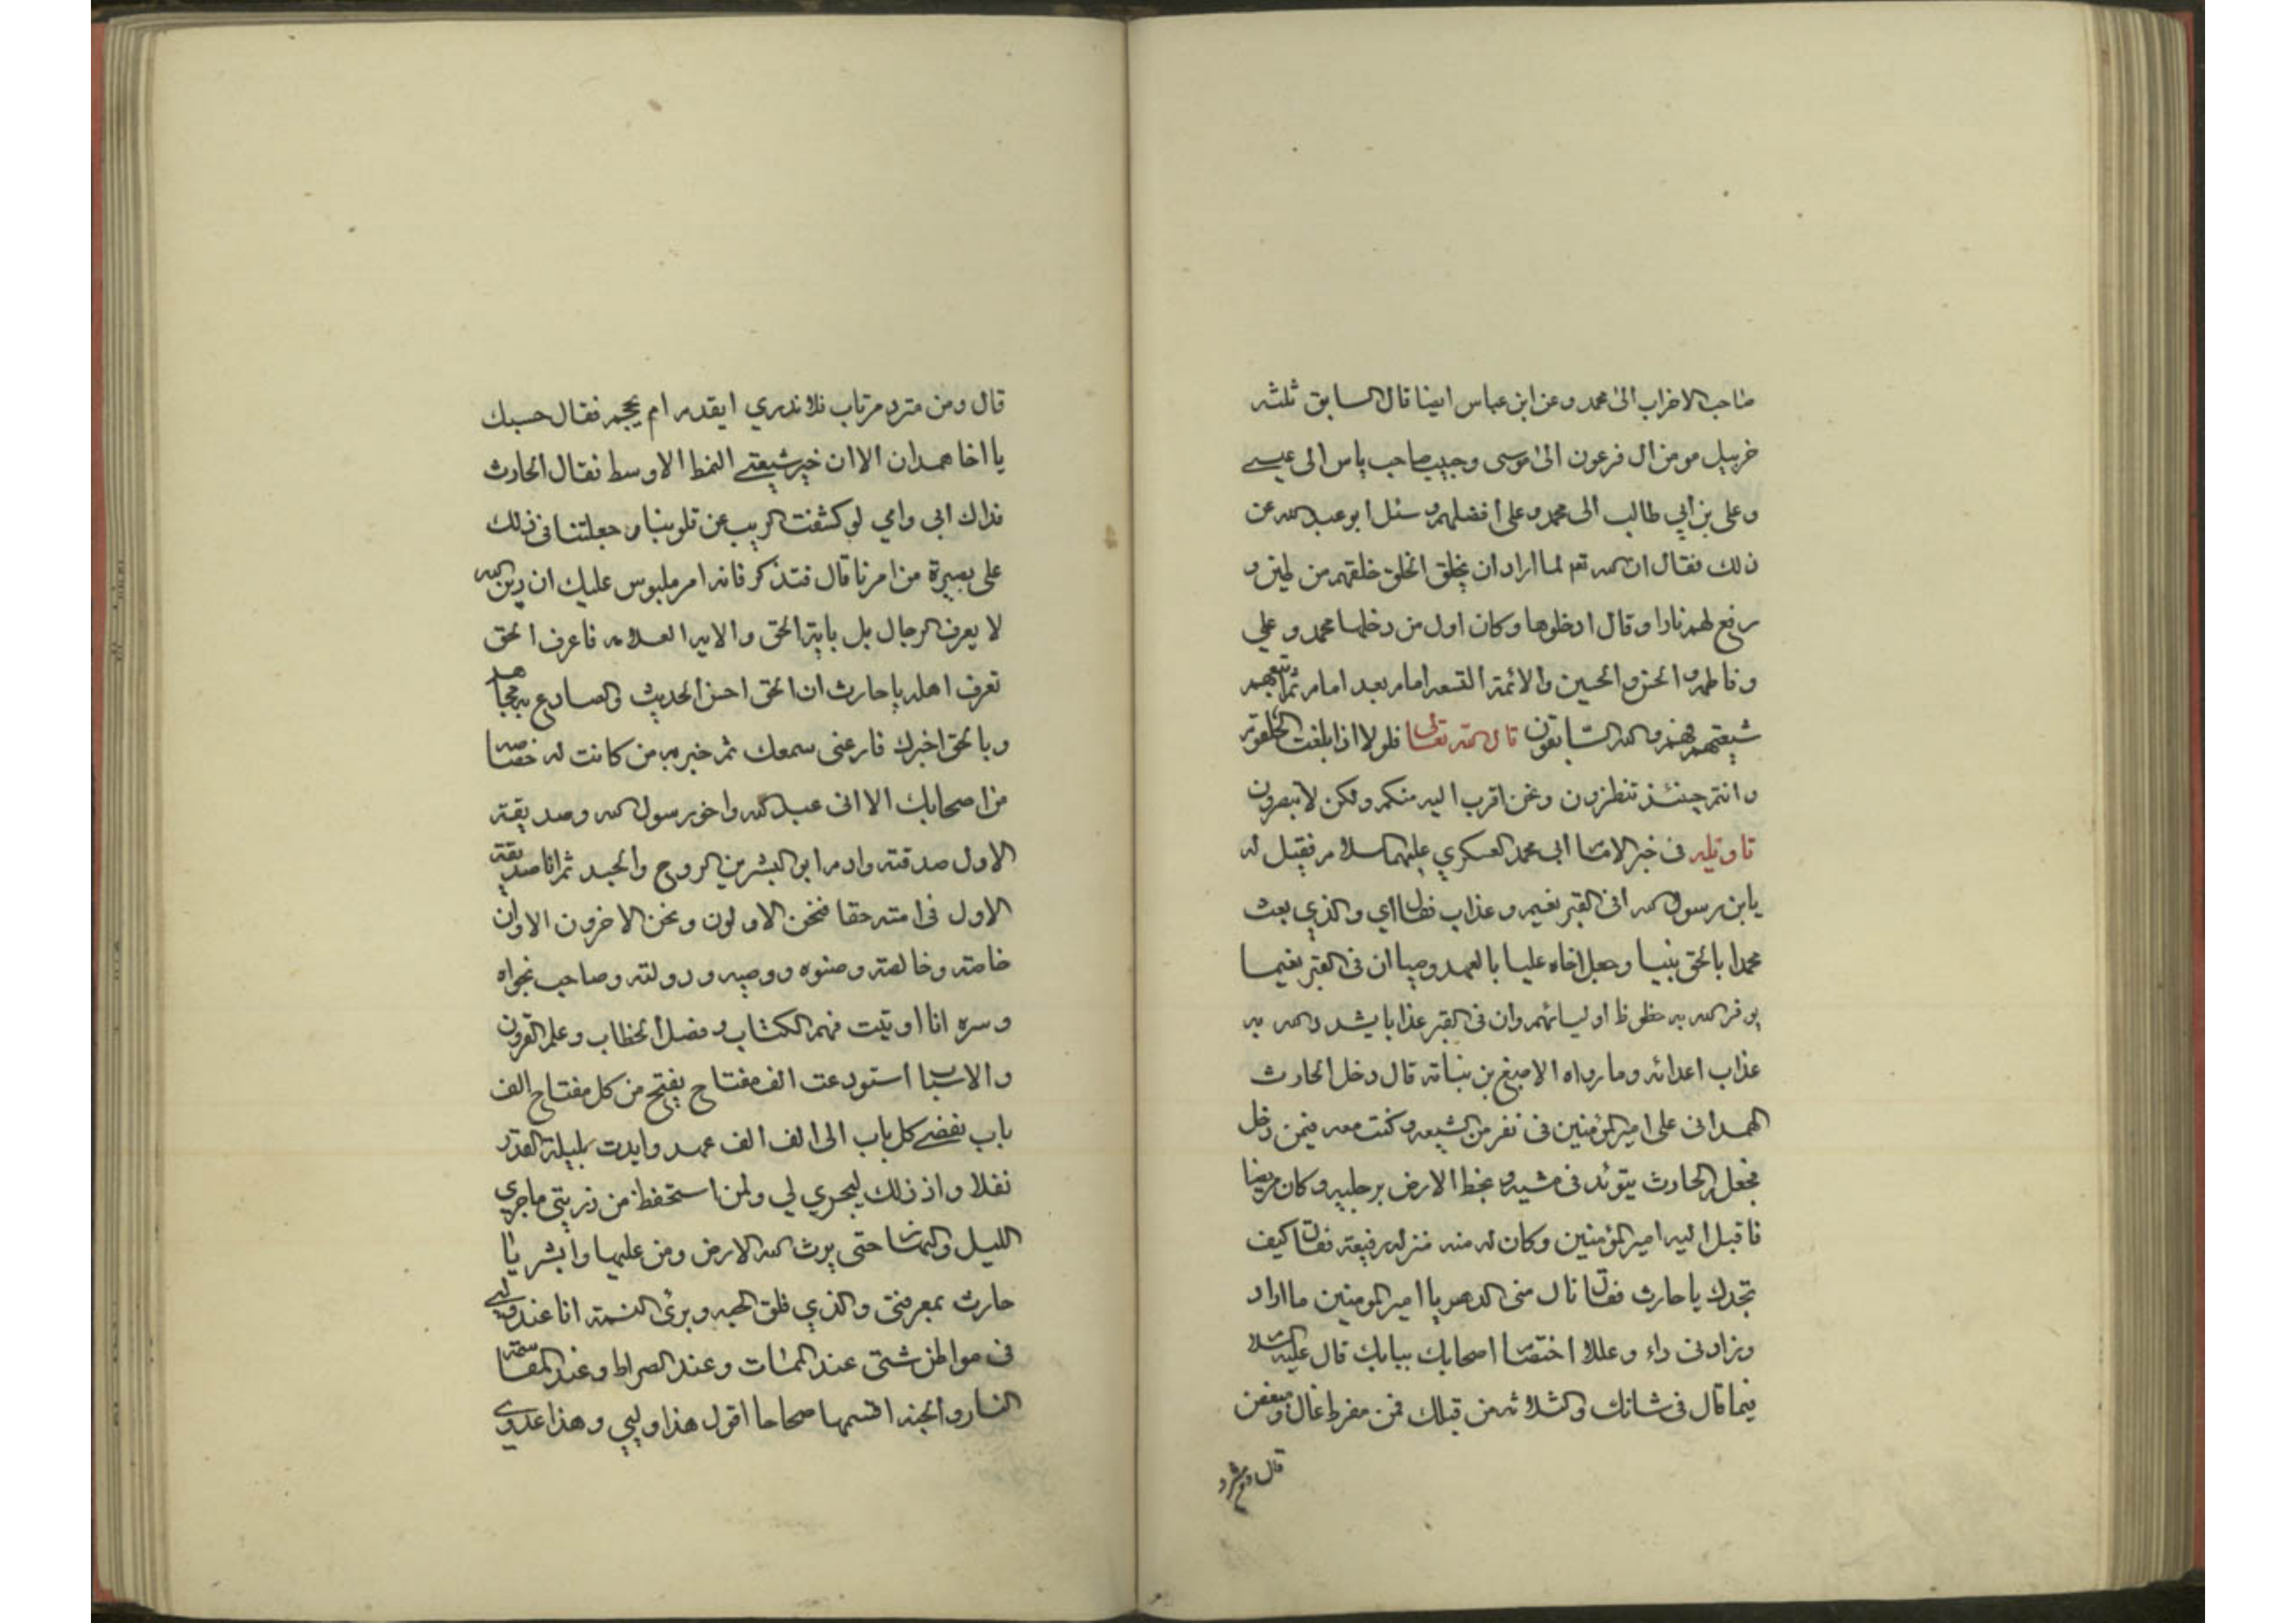 صاحب الاحزاب الى محمد وعن ابن عباس ايضا قال السابق ثلثه
خربيل مومن ال فرعون الى موسى وحبيب صاحب ياس الى عيسى
وعلى بن أبي طالب الى محمد وعلى افضلهم وسئل ابو عبد الله عن
ذلك فقال ان الله تعم لما اراد ان يخلق الخلق خلقهم من طين و
رفع لهم نارا وقال ادخلوها وكان اول من دخلها محمد و علي
وفاطمه والحسن والحسين والائمة التسعه امام بعد امام ثم اتبعهم
شيعتهم فهم والله السابقون قال الله تعالى فلولا اذا بلغت الحلقوم
وانتم حينئذ تنظرون ونحن اقرب اليه منكم ولكن لا تبصرون
تاويله فى خبر الامام ابى محمد العسكري عليهما السلام فقيل له
يابن رسول الله افى القبر نعيم وعذاب فقال اي والذي بعث
محمدا بالحق نبيا وجعل اخاه عليا بالعهد وصيا ان فى القبر نعيما
يوفر الله به حظوظ اوليائهم وان فى القبر عذابا يشدد الله به
عذاب اعدائه وما رواه الاصبغ بن نباته قال دخل الحارث
الهمدانى على امير المؤمنين فى نفر من الشيعه وكنت معه فيمن دخل
فجعل الحارث يتوئد فى مشيه ويخط الارض برجليه وكان مريضا
فاقبل اليه امير المؤمنين وكان له منه منزله رفيعة فقال كيف
تجدك يا حارث فقال نال منى الدهر يا امير المومنين ما اراد
وزادنى داء وعللا اختصام اصحابك ببابك قال عليه السلام
فيما قال فى شانك والثلاثه من قبلك فمن مفرط غال ومبغض
قال ومن مترد
قال ومن مترد مرتاب فلا ندري ايقدم ام يحجم فقال حسبك
يا اخا همدان الا ان خير شيعتى النمط الاوسط فقال الحارث
فداك ابى وامي لو كشفت الريب عن قلوبنا وجعلتنا فى ذلك
على بصيرة من امرنا قال فتذكر فانه امر ملبوس عليك ان دين الله
لا يعرف الرجال بل باية الحق والايه العلامه فاعرف الحق
تعرف اهله يا حارث ان الحق احسن الحديث والصادع به مجاهد
وبالحق اخبرك فارعنى سمعك ثم خبر به من كانت له خصاصه
من اصحابك الا انى عبد الله واخو رسول الله وصديقه
الاول صدقته وادم ابو البشر بين الروح والجسد ثم انا صديقه
الاول فى امته حقا فنحن الاولون ونحن الاخرون الا وان
خاصته وخالصته وصنوه ووصيه و دولته وصاحب نجواه
وسره انا اوتيت فهم الكتاب وفصل الخطاب وعلم القرون
والاسباب استودعت الف مفتاح يفتح من كل مفتاح الف
باب يفضى كل باب الى الف الف عهد وايدت بليلة القدر
نفلا واذ ذلك ليجري لي ولمن استحفظ من ذريتى ما جرى
الليل والنهار حتى يرث الله الارض ومن عليها وابشر يا
حارث بمعرفتى والذي فلق الحبه وبرئ النسمة انا عند وليى
فى مواطن شتى عند الممات وعند الصراط وعند المقاسمة
النار والجنه اقسمها صحاحا اقول هذا وليي وهذا عدوى